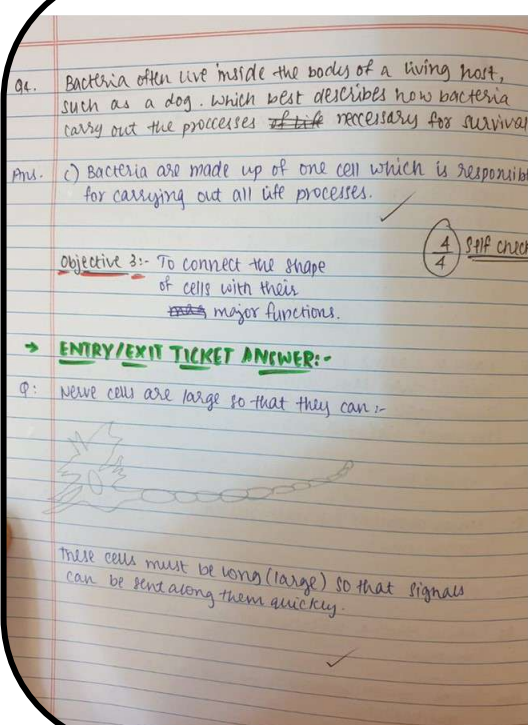 Q4. Bacteria often live inside the body of a living host,
such as a dog. which best describes how bacteria
carry out the proccesses of life neccessary for survival
Ans. c) Bacteria are made up of one cell which is responsibl
for carrying out all life processes.
4/4 Self check
Objective 3:- To connect the shape
of cells with their
major functions.
→ ENTRY/EXIT TICKET ANSWER:-
Q: Nerve cells are large so that they can :-
These cells must be long (large) so that signals
can be sent along them quickly.